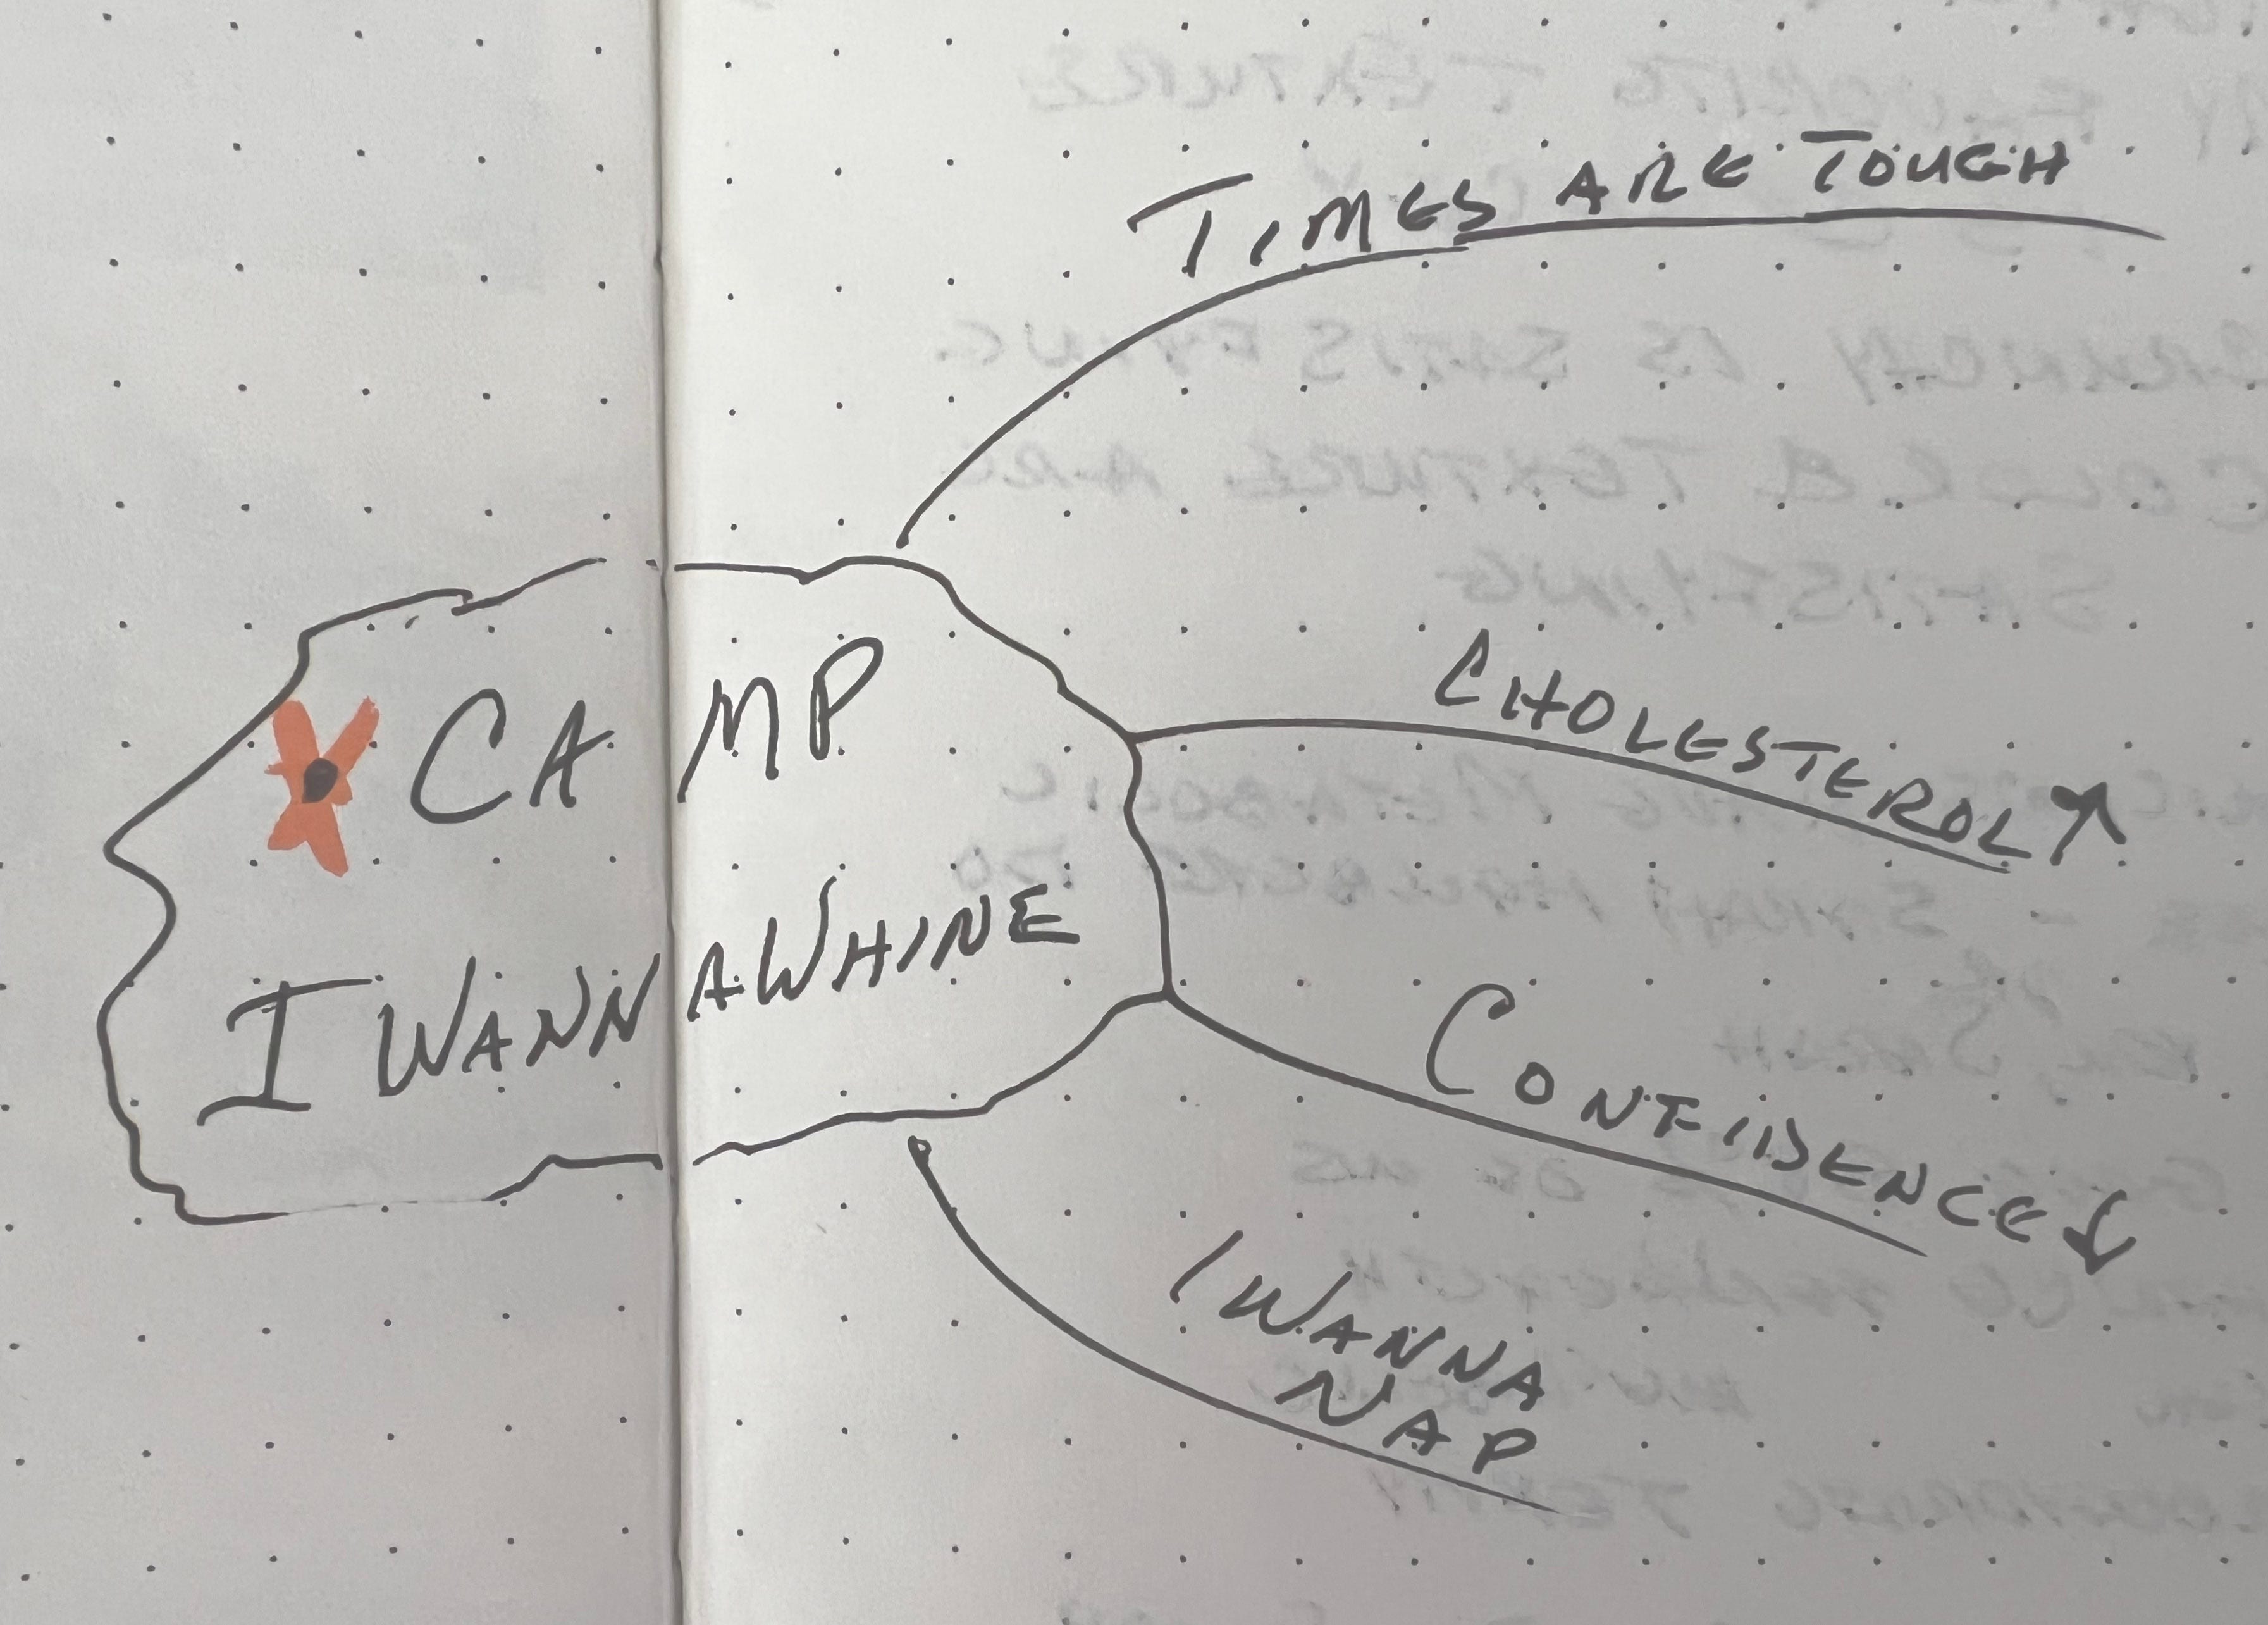 CAMP
I WANNAWHINE
TIMES ARE TOUGH
CHOLESTEROL ↑
CONFIDENCE ↓
I WANNA
NAP